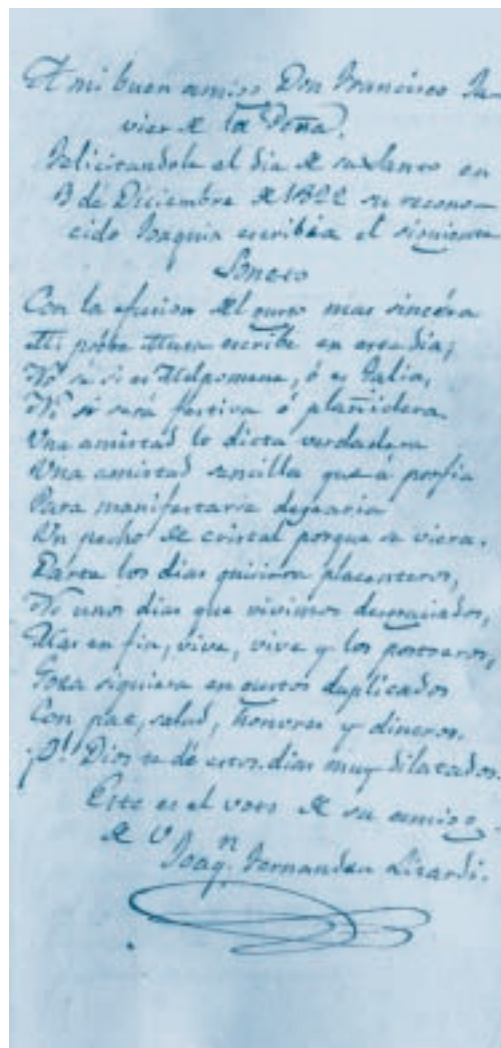 A mi buen amigo Don Francisco Ja-
vier de la Peña.
Felicitandole el dia de su Santo en
3 de Diciembre de 1822 su recono-
cido Joaquin escribia el siguiente
Soneto
Con la efusion del gusto mas sincéra
Mi pobre Musa escribe en este dia;
No sé si es Melpomene, ó es Talia,
Ni si será festiva ó plañidera.
Una amistad lo dicta verdadera
Una amistad sencilla que á porfia
Para manifestarse desearia
Un pecho de cristal porque se viera.
Darte los dias quisiera placenteros,
No unos dias que vivimos desgraciados,
Mas en fin, vive, vive y los postreros,
Goza siquiera en gustos duplicados
Con paz, salud, honores y dineros.
¡O! Dios te dé estos dias muy dilatados.
Este es el voto de su amigo
de V.
Joaqn. Fernandez Lizardi.